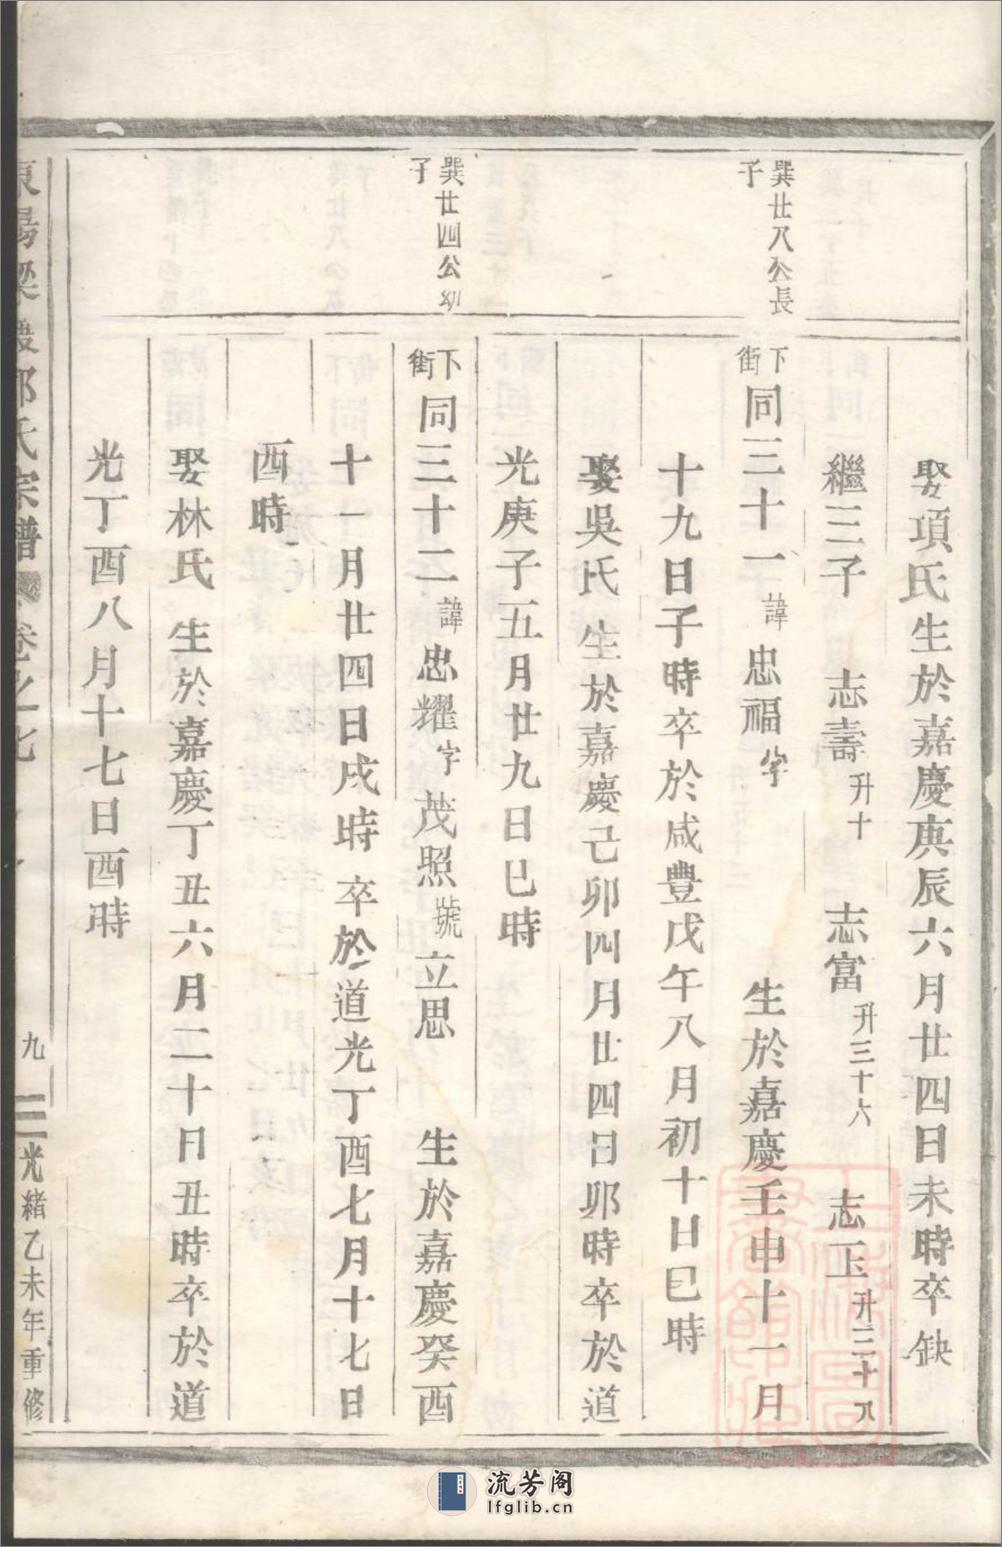 娶項氏生於嘉慶庚辰六月廿四日未時卒缺
繼三子 志壽升十 志富升三十六 志玉升三十八
巽廿八公長子
下街同三十一諱忠福字 生於嘉慶壬申十一月
十九日子時卒於咸豐戊午八月初十日巳時
娶吳氏 生於嘉慶己卯四月廿四日卯時卒於道
光庚子五月廿九日巳時
巽廿四公幼子
下街同三十二諱忠耀字茂照號立思 生於嘉慶癸酉
十一月廿四日戌時 卒於道光丁酉七月十七日
酉時
娶林氏 生於嘉慶丁丑六月二十日丑時卒於道
光丁酉八月十七日酉時
東陽 氏宗譜 卷之七
九
光緒乙未年重修
流芳阁
lfglib.cn